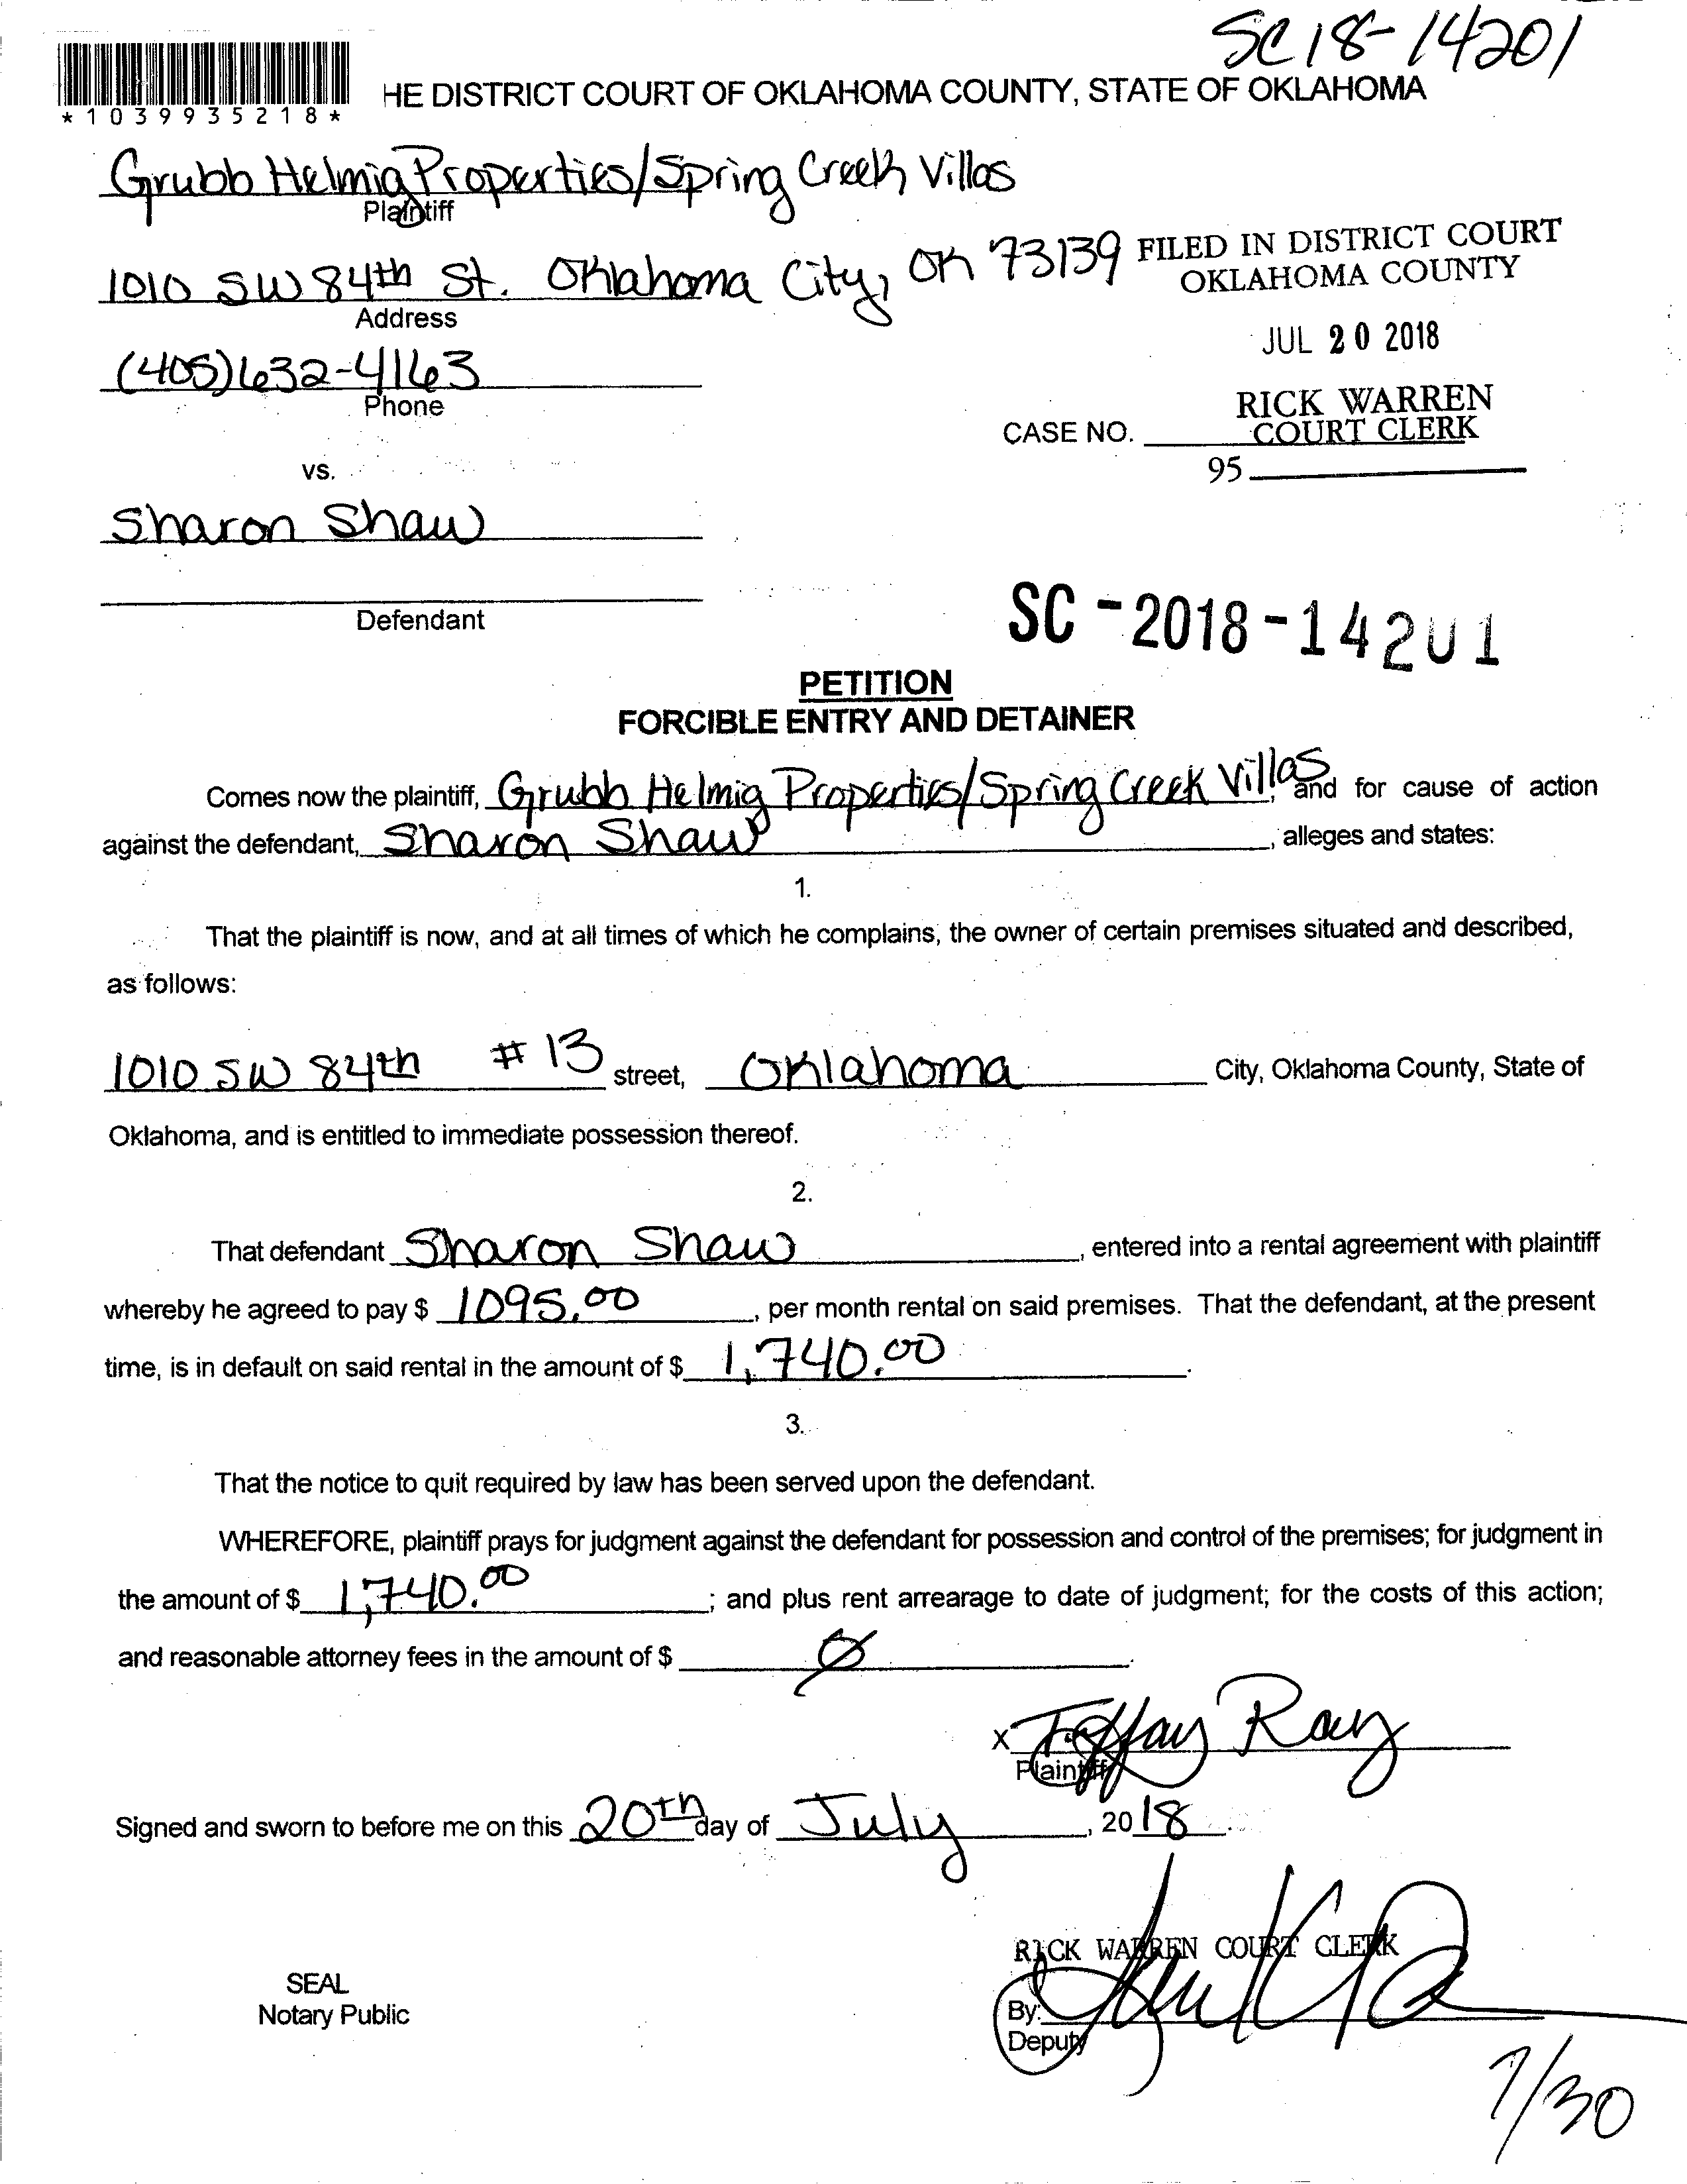 SC18-14201
*1039935218*
HE DISTRICT COURT OF OKLAHOMA COUNTY, STATE OF OKLAHOMA
Grubb Helmig Properties/Spring Creek Villas
Plaintiff
1010 SW 84th St. Oklahoma City, OK 73139
Address
FILED IN DISTRICT COURT
OKLAHOMA COUNTY
JUL 20 2018
(405)632-4163
Phone
RICK WARREN
CASE NO. COURT CLERK
95
vs.
Sharon Shaw
Defendant
SC-2018-14201
PETITION
FORCIBLE ENTRY AND DETAINER
Comes now the plaintiff, Grubb Helmig Properties/Spring Creek Villas, and for cause of action
against the defendant, Sharon Shaw, alleges and states:
1.
That the plaintiff is now, and at all times of which he complains, the owner of certain premises situated and described,
as follows:
1010 SW 84th #13 street, Oklahoma City, Oklahoma County, State of
Oklahoma, and is entitled to immediate possession thereof.
2.
That defendant Sharon Shaw, entered into a rental agreement with plaintiff
whereby he agreed to pay $ 1095.00, per month rental on said premises. That the defendant, at the present
time, is in default on said rental in the amount of $ 1,740.00.
3.
That the notice to quit required by law has been served upon the defendant.
WHEREFORE, plaintiff prays for judgment against the defendant for possession and control of the premises; for judgment in
the amount of $ 1,740.00; and plus rent arrearage to date of judgment; for the costs of this action;
and reasonable attorney fees in the amount of $ Ø.
X Tiffany Ray
Plaintiff
Signed and sworn to before me on this 20th day of July, 2018.
RICK WARREN COURT CLERK
SEAL
Notary Public
By:
Deputy
7/30